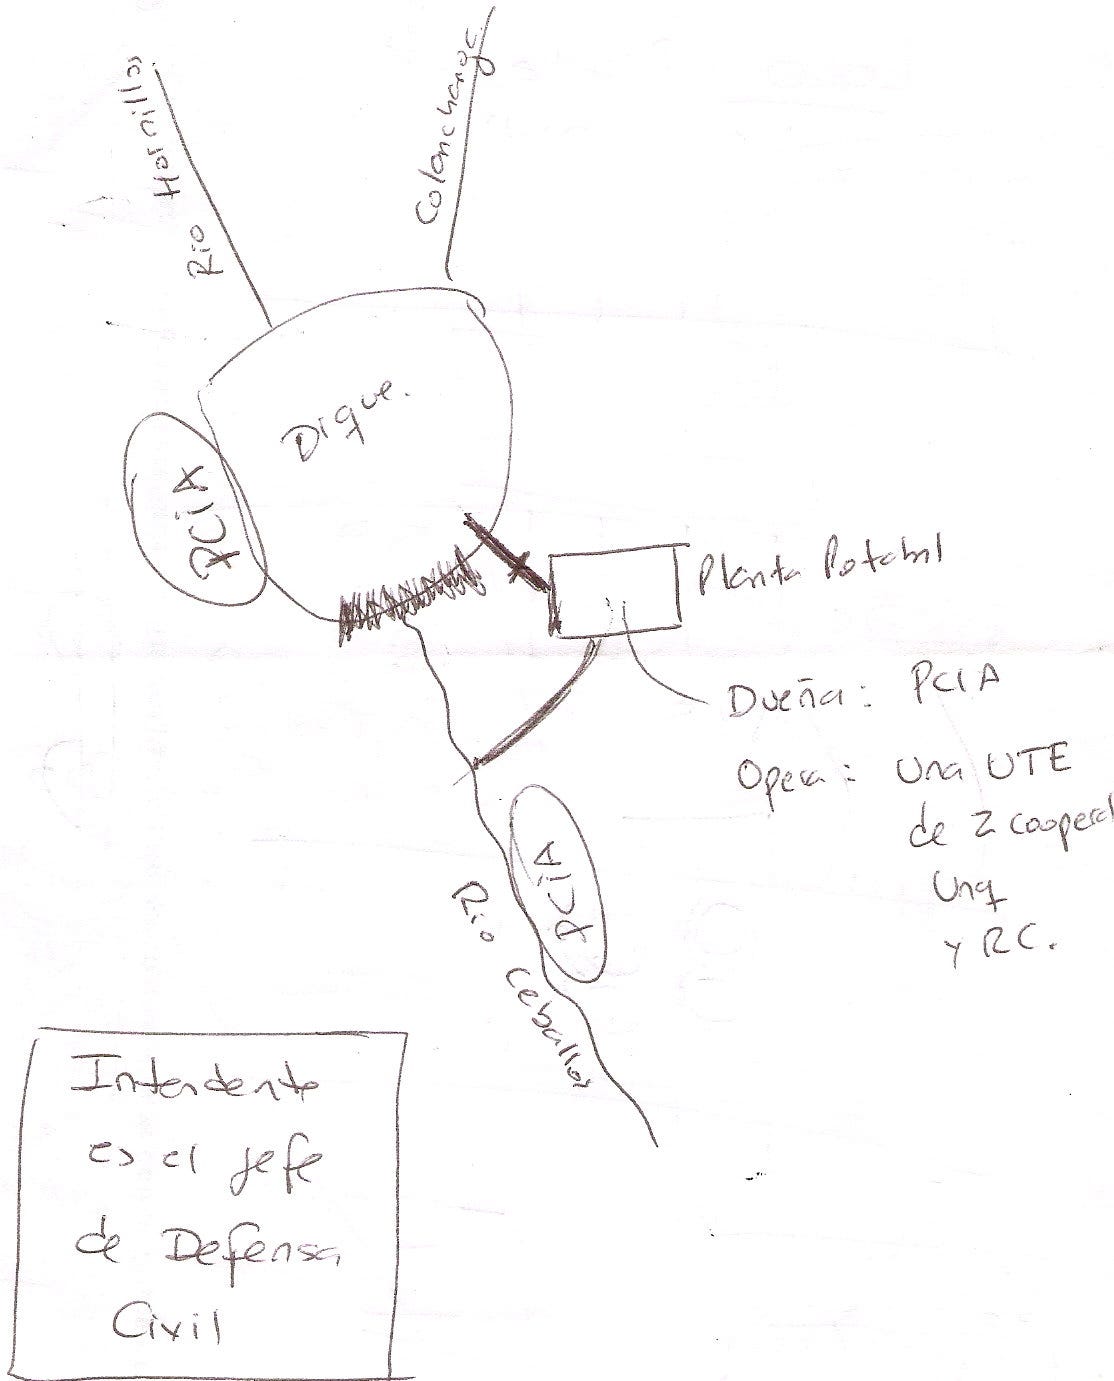 Rio Hornillos
Colanchanga
Dique.
PCIA
Planta Potabil
Dueña: PCIA
Opera: Una UTE
de 2 cooperat
Unq
y RC.
PCIA
Rio Ceballos
Intendente
es el jefe
de Defensa
Civil